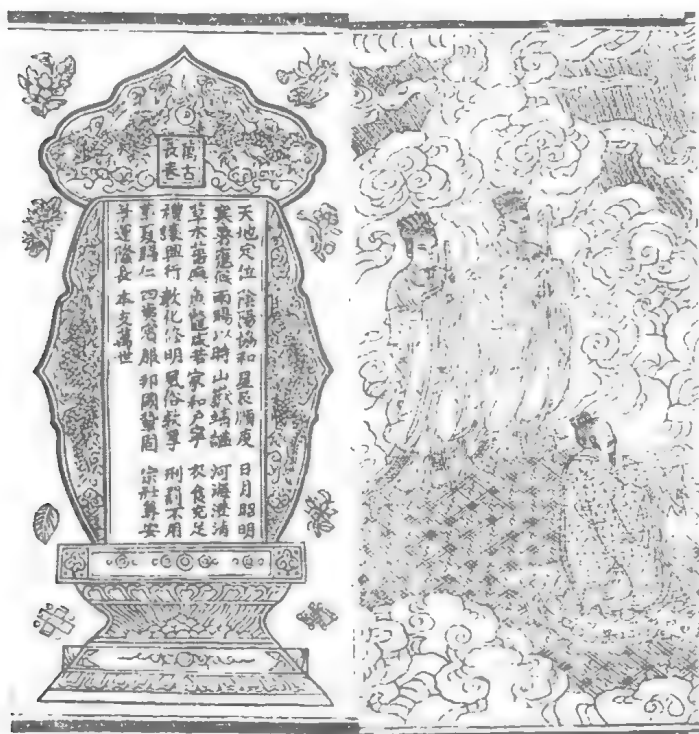 萬古
長春
天地定位 陰陽協和 星辰順度 日月昭明
寒暑應候 雨暘以時 山嶽靖謐 河海澄清
草木蕃廡 魚鱉咸若 家和戶寧 衣食充足
禮讓興行 敎化修明 風俗敦厚 刑罰不用
華夏歸仁 四夷賓服 邦國鞏固 宗社尊安
景運隆長 本支萬世